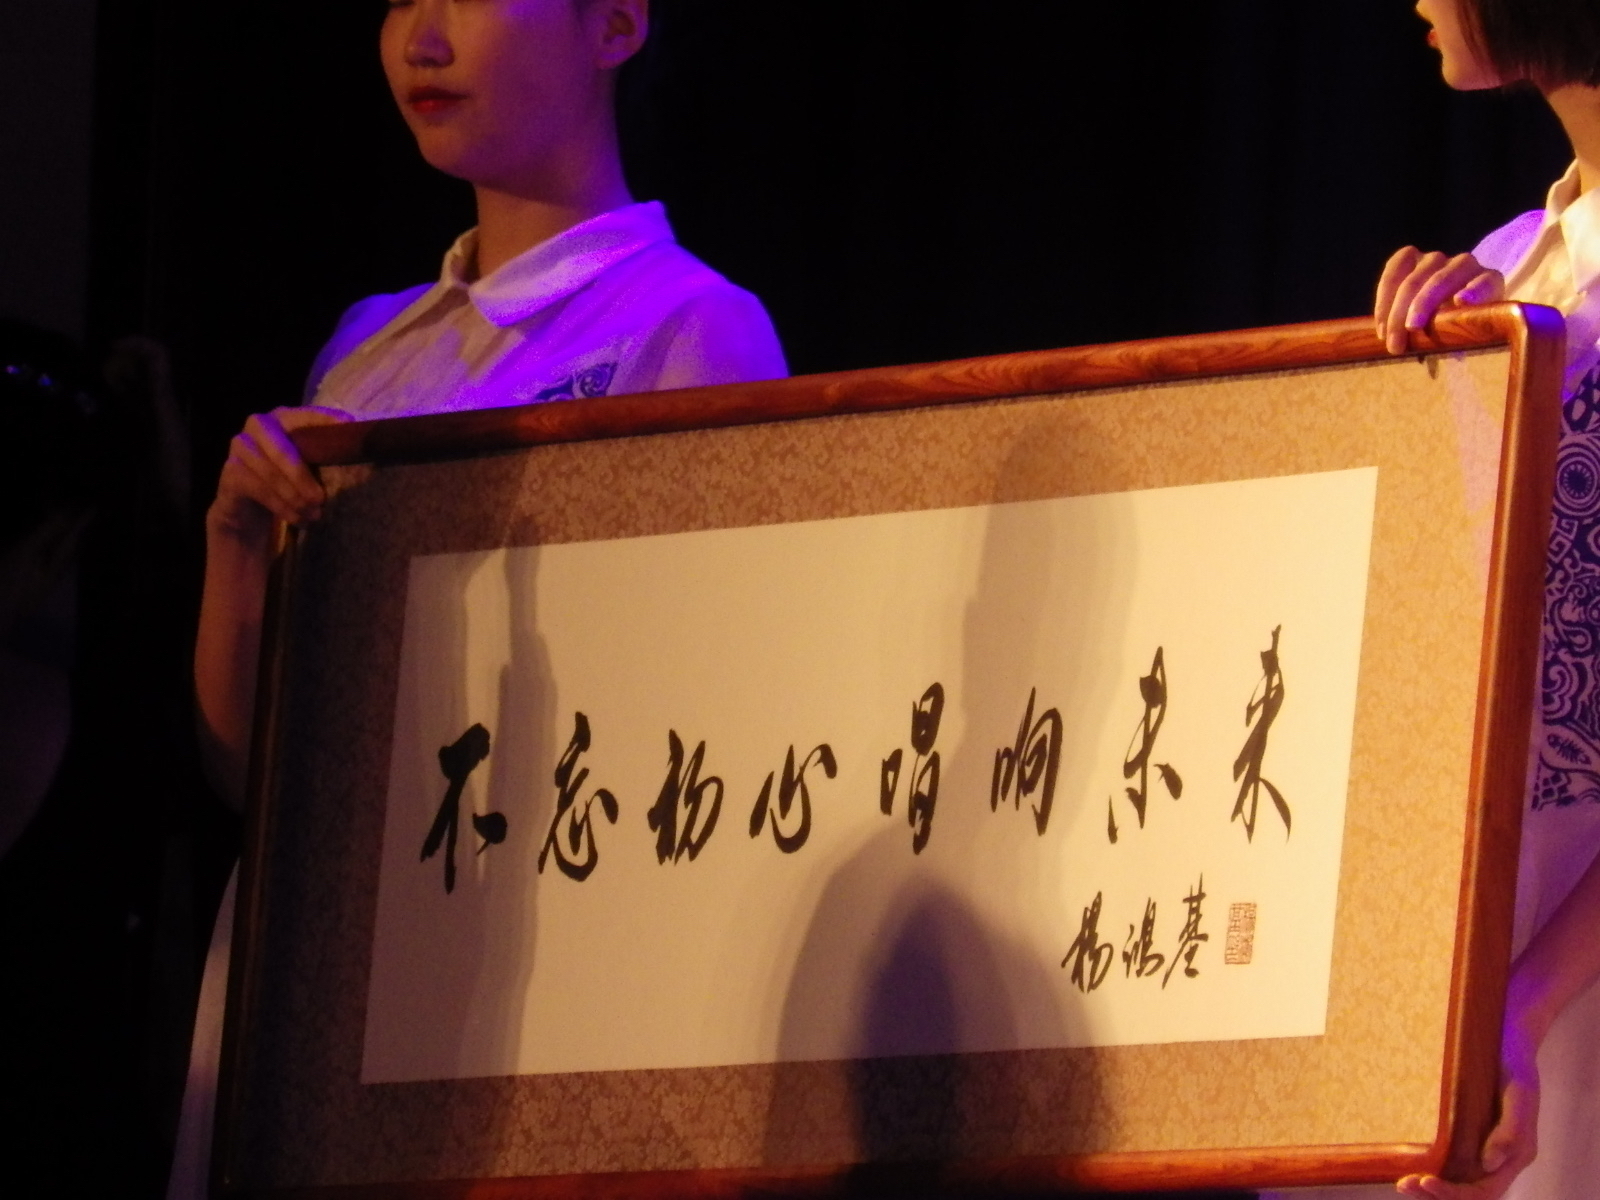 不忘初心唱响未来
杨鸿基